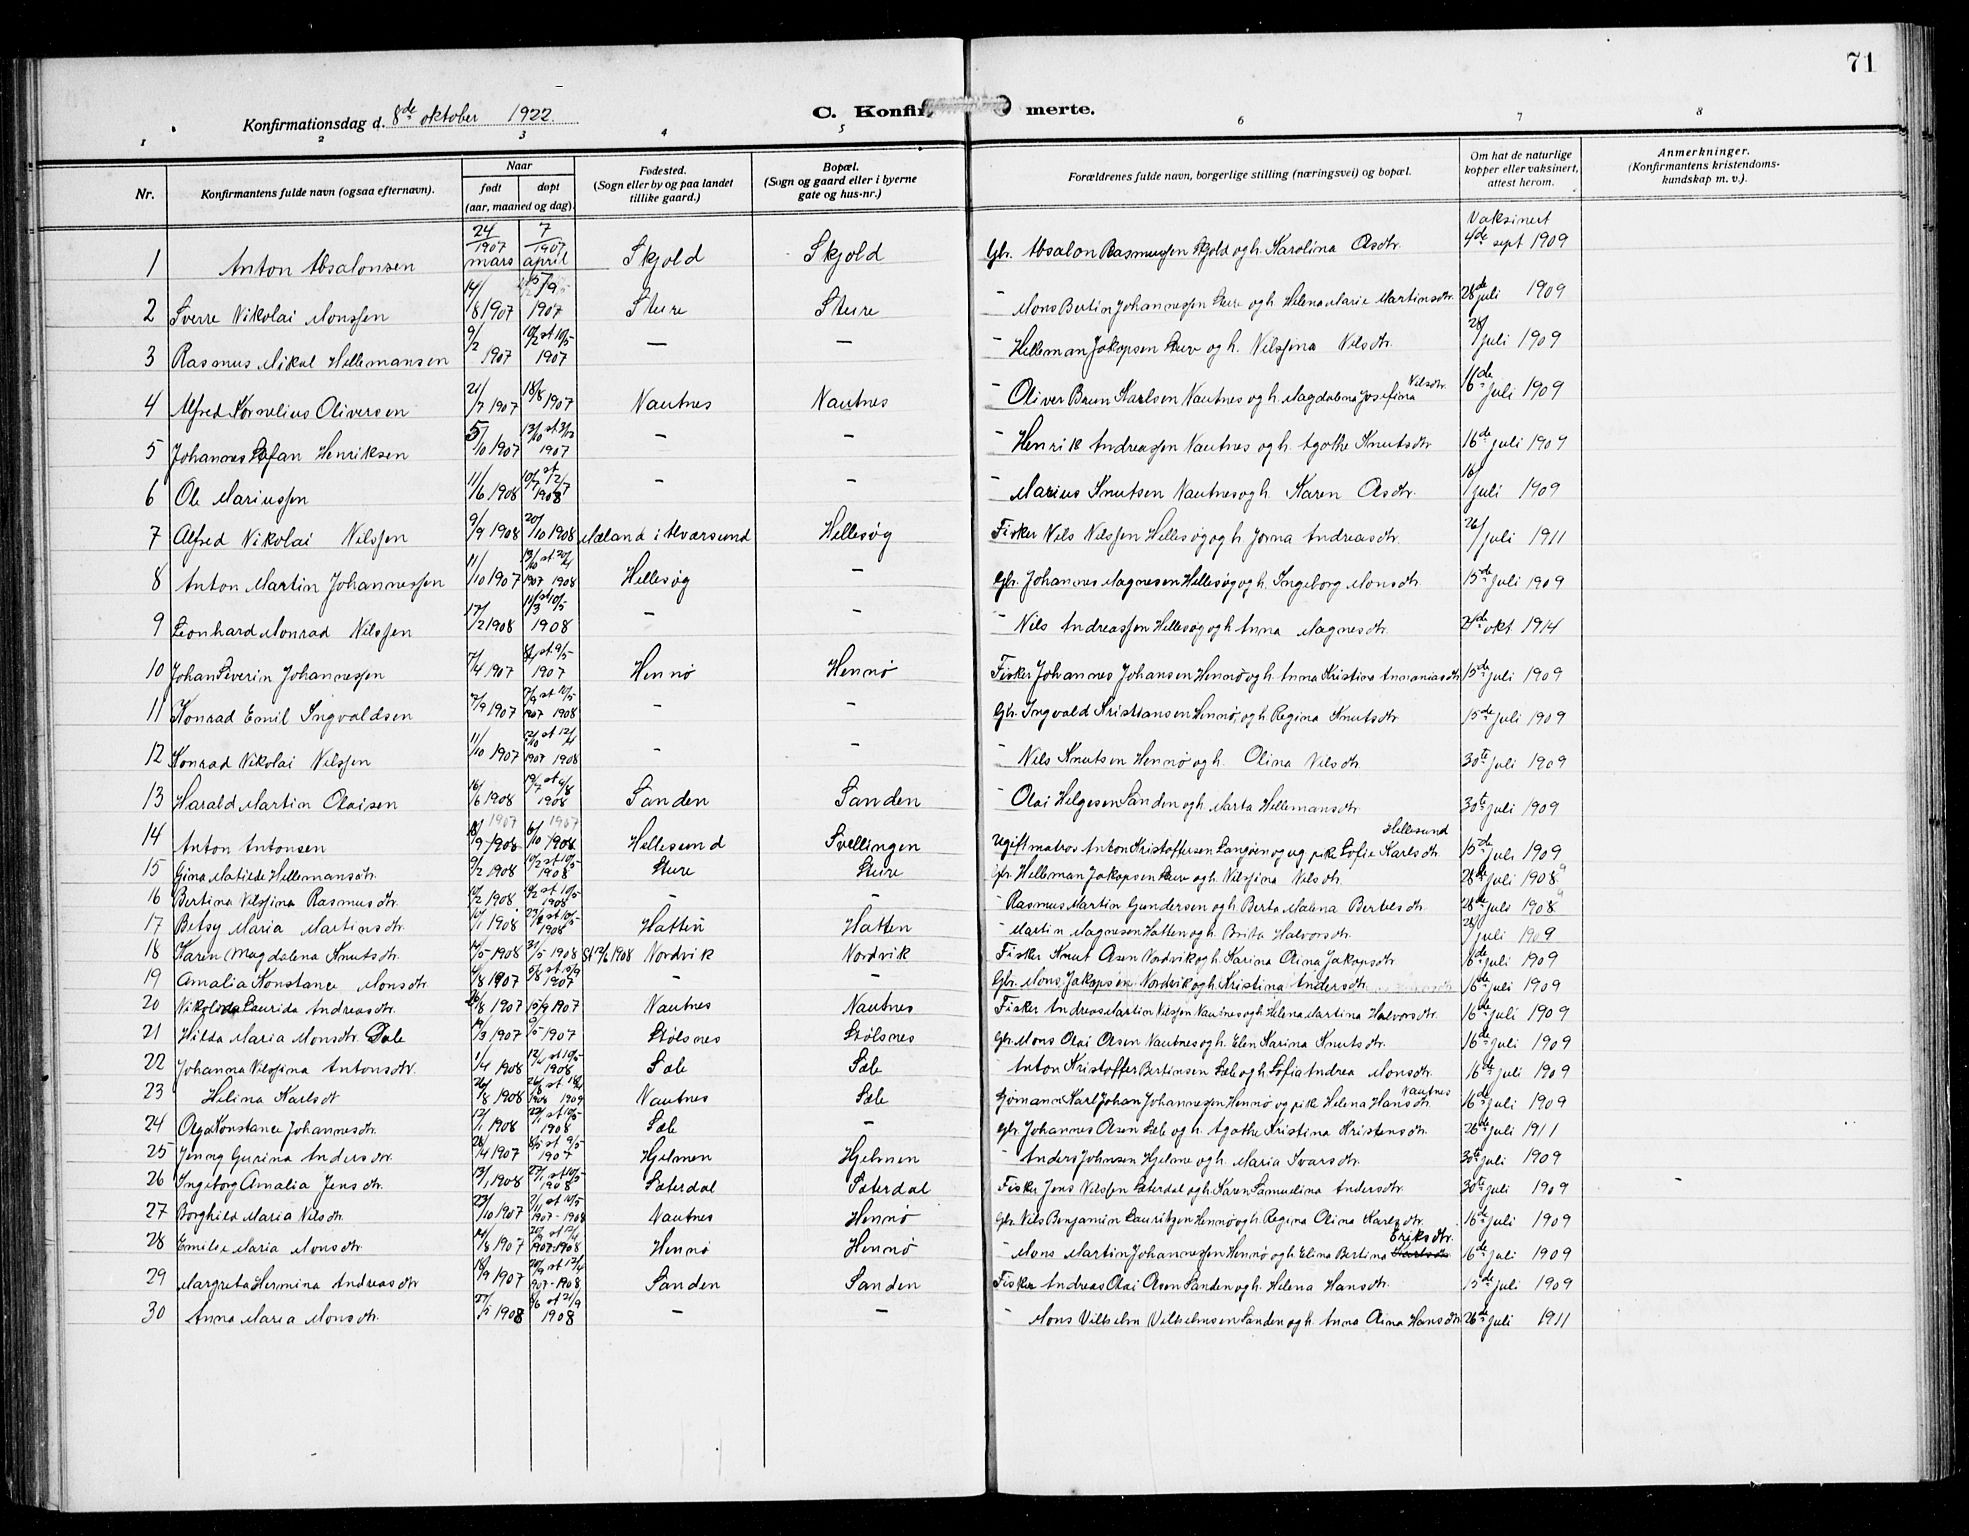 71
C. Konfir merte.
Konfirmationsdag d. 8de oktober 1922.
1 2 3 4 5 6 7 8
Nr. Konfirmantens fulde navn (ogsaa efternavn). Naar født døpt (aar, maaned og dag). Fødested. (Sogn eller by og paa landet tillike gaard.) Bopæl. (Sogn og gaard eller i byerne gate og hus-nr.) Forældrenes fulde navn, borgerlige stilling (næringsvei) og bopæl. Om hat de naturlige kopper eller vaksinert, attest herom. Anmerkninger. (Konfirmantens kristendomskundskap m. v.).
1 Anton Absalonsen 24/1907 mars 7/1907 april Skjold Skjold Gbr. Absalon Rasmussen Skjold og h. Karolina Asdtr. Vaksinert 4de sept 1909
2 Sverre Nikolai Monssen 14/8 1907 1907 Sture Sture - Mons Bertin Johannessen Sture og h. Helena Marie Martinsdtr. 28de juli 1909
3 Rasmus Mikal Hellemansen 9/2 1907 10/2 st 10/5 1907 — — - Helleman Jakopsen Sture og h. Nilssina Nilsdtr. 28/ juli 1909
4 Alfred Kornelius Oliversen 21/7 1907 18/8 1907 Nautnes Nautnes - Oliver Brun Karlsen Nautnes og h. Magdalena Josefina Nilsdtr. 16de juli 1909
5 Johannes Stefan Henriksen 5/10 1907 13/10 st 3/12 1907 - - - Henrik Andreassen Nautnes og h. Agothe Knutsdtr 16de juli 1909
6 Ole Mariussen 11/6 1908 st 1908 - - - Marius Knutsen Nautnes og h. Karen Asdtr. 16/ juli 1909
7 Alfred Nikolai Nilssen 9/9 1908 20/10 1908 Mæland i Alvarsund Hellesøg Fisker Nils Nilssen Hellesøg og h. Jonna Andreasdtr. 26/ juli 1911
8 Anton Martin Johannessen 11/10 1907 13/10 st 20/4 1907 1908 Hellesøg - Gbr. Johannes Magnesen Hellesøg og h. Ingeborg Monsdtr. 15de juli 1909
9 Leonhard Monrad Nilssen 17/2 1908 11/3 st 10/5 1908 - - - Nils Andreassen Hellesøg og h Anna Magnesdtr. 21de okt 1914
10 Johan Severin Johannessen 7/4 1907 st 9/5 1907 Hennø Hennø Fisker Johannes Johansen Hennø og h. Anna Kristine Annaniasdtr 15de juli 1909
11 Konrad Emil Ingvaldsen 2/9 1907 st 1907 1908 - - Gbr. Ingvald Kristiansen Hennø, og h Regina Knutsdtr. 15de juli 1909
12 Konrad Nikolai Nilssen 11/10 1907 12/10 st 12/4 1907 1908 - - - Nils Knutsen Hennø og h. Olina Nilsdtr. 30te juli 1909
13 Harald Martin Olaisen 16/6 1908 19/7 st 9/8 1908 Sanden Sanden - Olai Helgesen Sanden og h. Marta Hellemansdtr. 30te juli 1909
14 Anton Antonsen 18/9 1908 1907 6/10 1908 1907 Hellesund Svellingen Ugift matros Anton Kristoffersen Langøen og ug. pike Sofie Karlsdtr Hellesund 15de juli 1909
15 Gina Matilde Hellemansdtr. 9/2 1908 10/2 st 10/5 1908 Sture Sture Gbr. Helleman Jakopsen Sture og h. Nilssina Nilsdtr. 28de juli 1908
16 Bertina Nilssina Rasmusdtr. 10/2 1908 st 10/5 1908 - - - Rasmus Martin Gundersen og h. Berta Malena Bertelsdtr. 28de juli 1908
17 Betsy Maria Martinsdtr. 10/1 1908 st 10/5 1908 Hatten Hatten - Martin Magnesen Hatten og h. Brita Halvorsdtr. 28/ juli 1909
18 Karen Magdalena Knutsdtr. 17/5 1908 31/5 1908 St 12/6 1908 Nordvik Nordvik Fisker Knut Asen Nordvik og h. Karina Olina Jakopsdtr. 16de juli 1909
19 Amalia Konstance Monsdtr 4/8 1907 5/8 st 15/9 1907 - - Gbr. Mons Jakopsen Nordvik og h Kristina Andersdtr. 16de juli 1909
20 Nikolida Laurida Andreasdtr. 26/8 1907 15/9 1907 Nautnes Nautnes Fisker Andreas Martin Nilssen Nautnes og h Helena Martina Halvorsdtr. 16de juli 1909
21 Hilda Maria Monsdtr. Dale 17/3 1907 9/5 1907 Stølsnes Stølsnes Gbr. Mons Olai Olsen Nautnes og h. Elen Karina Knutsdtr. 16de juli 1909
22 Johanna Nilssina Antonsdtr. 1/4 1908 12/4 st 10/5 1908 Sæle Sæle - Anton Kristoffer Bertinsen Sæle og h Sofia Andrea Monsdtr. 16de juli 1909
23 Helina Karlsdt 26/8 1908 st 1908 1909 Nautnes Sæle Sjømann Karl Johan Johannessen Hennø og pike Helena Hansdtr Nautnes 16de juli 1909
24 Olga Konstance Johannesdtr. 12/1 1908 st 10/5 1908 Sæle - Gbr. Johannes Olsen Sæle og h. Agothe Kristina Kristensdtr. 26de juli 1911
25 Jenny Gurina Andersdtr. 28/4 1907 st 9/5 1907 Hjelmen Hjelmen - Anders Johnsen Hjelme og h. Maria Ivarsdtr. 30te juli 1909
26 Ingeborg Amalia Jensdtr. 13/1 1908 st 10/5 1908 Sæterdal Sæterdal Fisker Jens Nilssen Sæterdal og h Karen Samuelina Andersdtr. 30te juli 1909 -
27 Borghild Maria Nilsdtr. 23/10 1907 st 10/5 1907-1908 Nautnes Hennø Gbr. Nils Benjamin Lauritzen Hennø og h. Regina Olina Karlsdtr. 16de juli 1909
28 Emilie Maria Monsdtr. 14/8 1907 st 12/4 1907-1908 Hennø Hennø - Mons Martin Johannessen Hennø og h Elina Bertina Karlsdtr Eriksdtr. 16de juli 1909
29 Margreta Hermina Andreasdtr 18/9 1907 st 12/4 1907-1908 Sanden Sanden Fisker Andreas Olai Olsen Sanden og h. Helena Hansdtr. 15de juli 1909
30 Anna Maria Monsdtr. 27/5 1908 8/6 st 21/9 1908 - - - Mons Vilhelm Vilhelmsen Sanden og h. Anna Olina Hansdtr 26de juli 1911